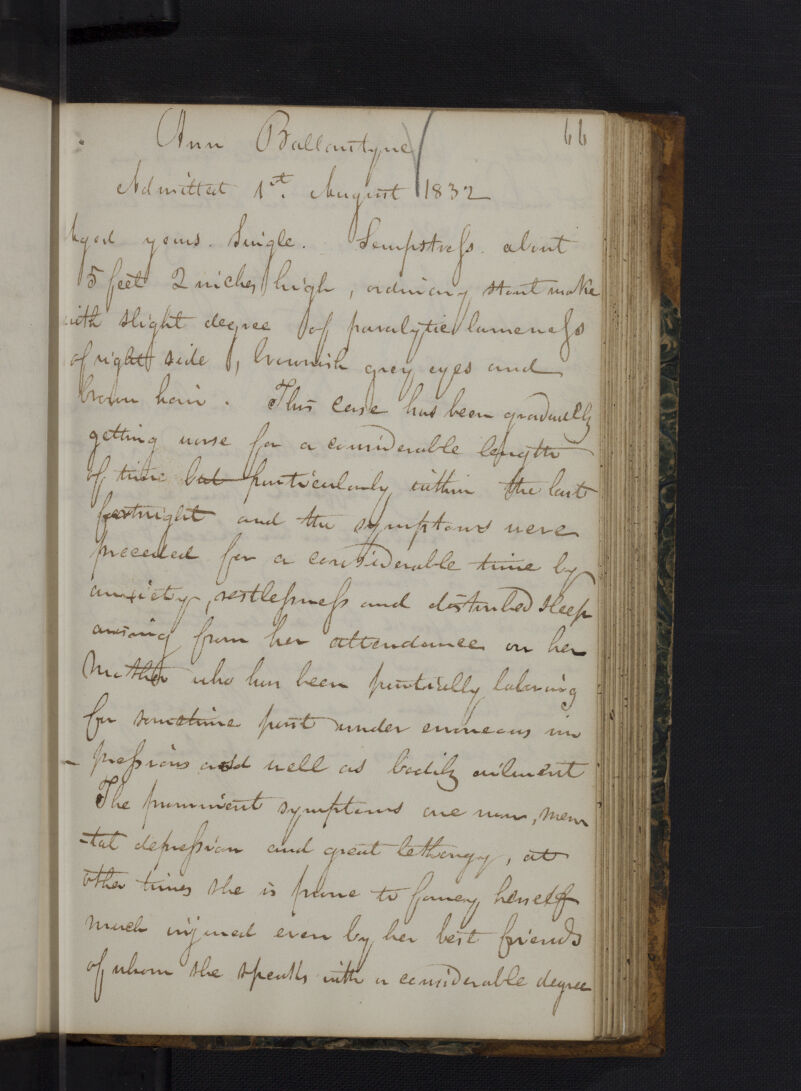 66
Ann Ballantyne
Admitted 1st. August 1832
Aged years. Single. Sempstress. about
5 feet 2 inches high, ordinary stout make
with slight degree of paralytic lameness
of right side, brownish grey eyes and
brown hair. This case has been gradually
getting worse for a considerable length
of time but particularly within the last
fortnight and the symptoms were
preceded for a considerable time by
anxiety, restlessness and disturbed sleep
arising from her attendance on her
Mother who has been partially laboring
for sometime past under erroneous im
-pressions as well as bodily ailment
The prominent symptoms are now, men
-tal depression and great lethargy, at
other times she is prone to fancy herself
much injured even by her best friends
of whom she speaks with a considerable degree